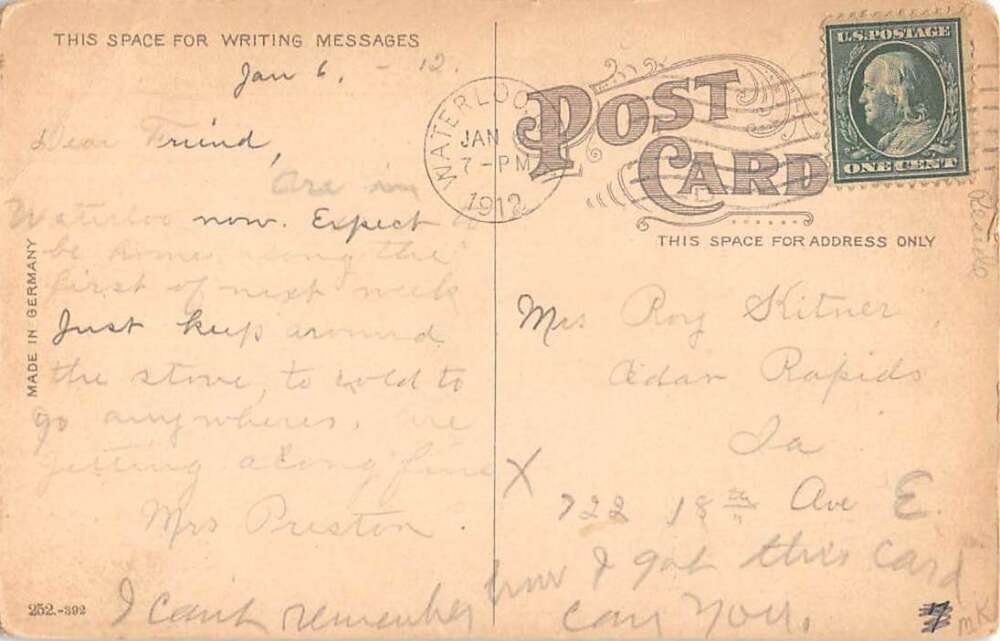 THIS SPACE FOR WRITING MESSAGES
Jan 6, - 12.
Dear Friend,
Are in
Waterloo now. Expect to
be home along the
first of next week
Just keep around
the stove, to cold to
go anywheres. are
getting along fine
Mrs Preston
MADE IN GERMANY
252.-392
WATERLOO
JAN
7-PM
1912
POST
CARD
U.S. POSTAGE
ONE CENT
THIS SPACE FOR ADDRESS ONLY
Mrs Roy Kitner
Cedar Rapids
Ia
X 722 18th Ave E.
I can't remember how I got this card
can you.
MK